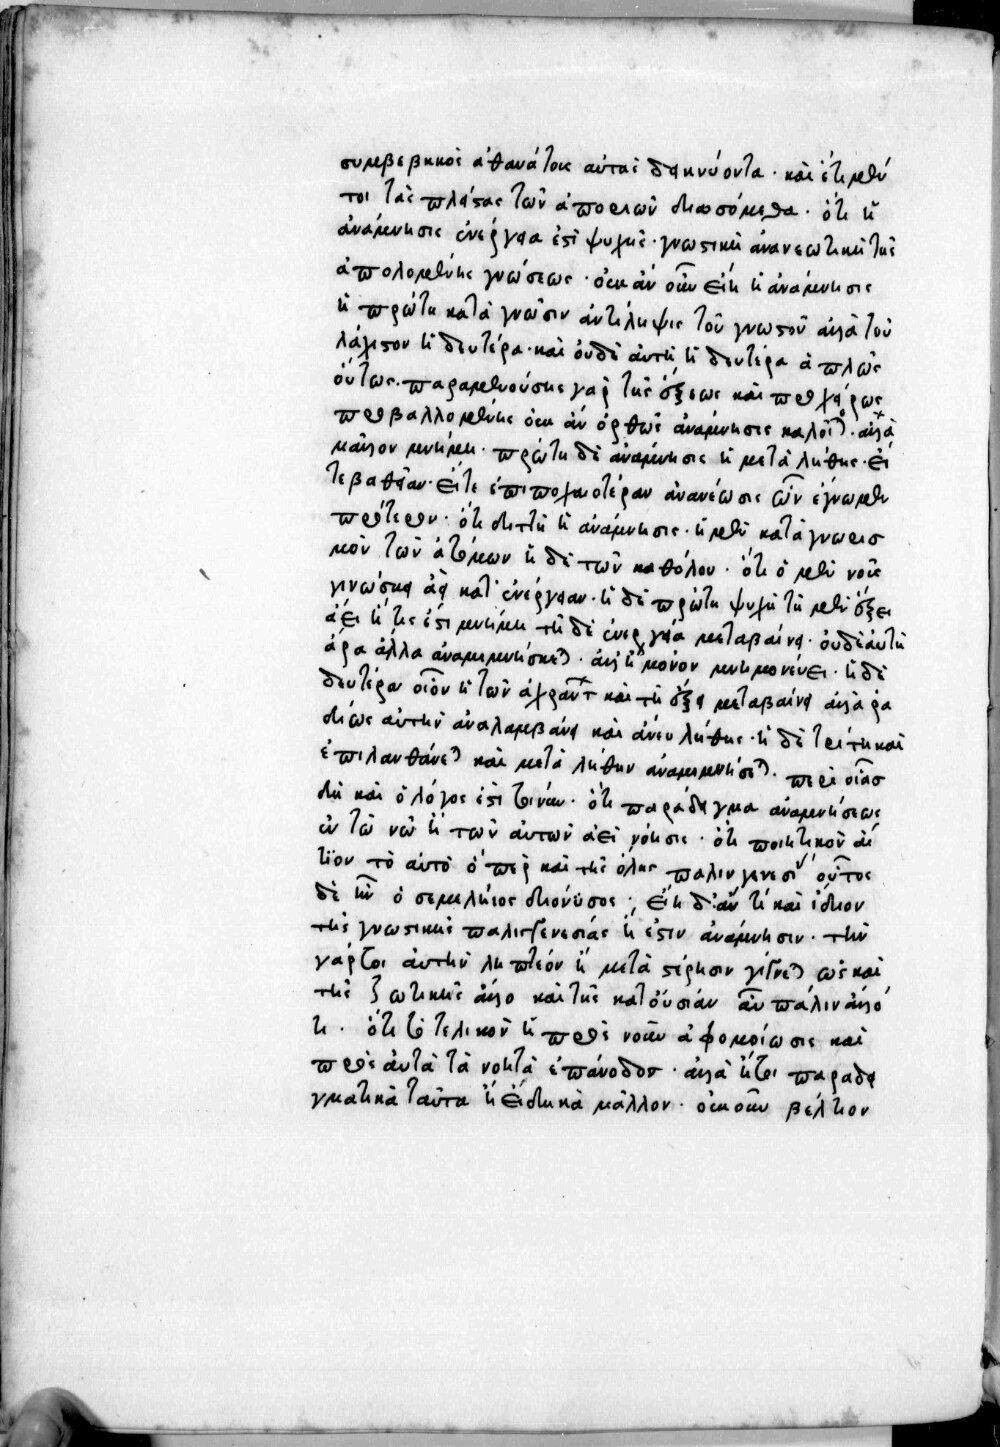 συμβεβηκὸς ἀθανάτους αὐτὰς δεικνύοντα · καὶ ἔτι μέν
τοι τὰς πλείστας τῶν ἀποριῶν διωσόμεθα · ὅτι ἡ
ἀνάμνησις ἐνέργεια ἐστὶ ψυχῆς · γνωστικὴ ἀνανεωτικὴ τῆς
ἀπολομένης γνώσεως · οὐκ ἂν οὖν εἴη ἡ ἀνάμνησις
ἡ πρώτη κατὰ γνῶσιν ἀντίληψις τοῦ γνωστοῦ ἀλλὰ τοὐ
λάχιστον ἡ δευτέρα · καὶ οὐδὲ αὐτὴ ἡ δευτέρα ἁπλῶς
οὕτως · παραμενούσης γὰρ τῆς ἕξεως καὶ προχείρως
προβαλλομένης οὐκ ἂν ὀρθῶς ἀνάμνησις καλοῖτο · ἀλλὰ
μᾶλλον μνήμη · πρώτη δὲ ἀνάμνησις ἡ μετὰ λήθης · εἴ
τε βαθεῖαν · εἴτε ἐπιπολαιοτέραν ἀνανέωσις ὧν ἔγνωμεν
πρότερον · ὅτι διττὴ ἡ ἀνάμνησις · ἡ μὲν κατὰ γνωρισ
μὸν τῶν ἀτόμων ἡ δὲ τῶν καθόλου · ὅτι ὁ μὲν νοῦς
γινώσκει ἀεὶ κατ' ἐνέργειαν · ἡ δὲ πρώτη ψυχὴ τῇ μὲν ἕξει
ἀεὶ ἥτις ἐστὶ μνήμη τῇ δὲ ἐνεργείᾳ μεταβαίνει · οὐδὲ αὐτὴ
ἄρα ἄλλα ἀναμιμνήσκεται · ἀλλ' ἢ μόνον μνημονεύει · ἡ δὲ
δευτέρα οἷον ἡ τῶν ἀχράντων καὶ τῇ ἕξει μεταβαίνει ἀλλὰ ῥᾳ
δίως αὐτὴν ἀναλαμβάνει καὶ ἄνευ λήθης · ἡ δὲ τρίτη καὶ
ἐπιλανθάνεται καὶ μετὰ λήθην ἀναμιμνήσκεται · περὶ οἵας
δὴ καὶ ὁ λόγος ἐστὶ τὰ νῦν · ὅτι παράδειγμα ἀναμνήσεως
ἐν τῷ νῷ ἡ τῶν αὐτῶν ἀεὶ νόησις · ὅτι ποιητικὸν αἴ
τιον τὸ αὐτὸ ὅπερ καὶ τῆς ὅλης παλιγγενεσίας οὗτος
δὲ ἦν ὁ σεμελήιος διονύσος · εἴη δ' ἄν τι καὶ ἴδιον
τῆς γνωστικῆς παλιγγενεσίας ἥ ἐστιν ἀνάμνησιν · τὴν
γάρ τοι αὐτὴν ληπτέον ἣ μετὰ στέρησιν γίγνεται ὡς καὶ
τῆς ζωτικῆς ἄλλο καὶ τῆς κατ' οὐσίαν αὖ πάλιν ἄλλο
τι · ὅτι τὸ τελικὸν ἡ πρὸς νοῦν ἀφομοίωσις καὶ
πρὸς αὐτὰ τὰ νοητὰ ἐπάνοδος · ἀλλὰ ἤτοι παραδει
γματικὰ ταῦτα ἢ εἰδικὰ μᾶλλον · οὐκοῦν βέλτιον